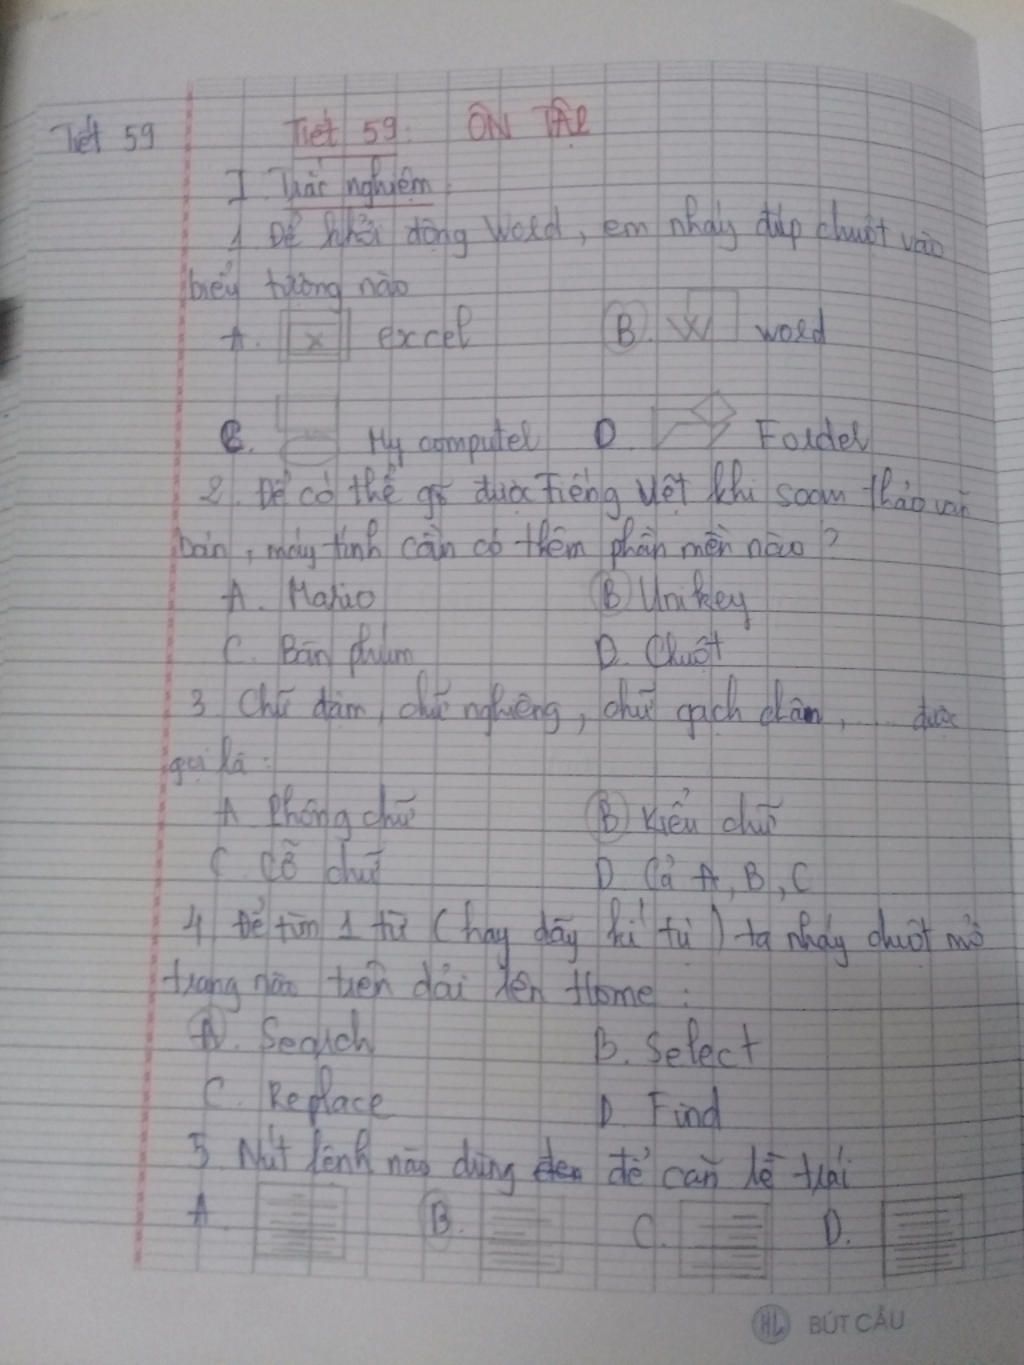 Tiết 59
Tiết 59: ÔN TẬP
I Trắc nghiệm
1 Để khởi động Word, em nháy đúp chuột vào
biểu tượng nào
A. X excel B. W word
C. My computer D. Folder
2. Để có thể gõ được Tiếng Việt khi soạn thảo văn
bản, máy tính cần có thêm phần mền nào?
A. Mario B Unikey
C. Bàn phím D. Chuột
3 Chữ đậm, chữ nghiêng, chữ gạch chân, ... được
gọi là:
A Phông chữ B Kiểu chữ
C. Cỡ chữ D Cả A, B, C
4 Để tìm 1 từ (hay dãy kí tự) ta nháy chuột mở
trang nào trên dải lên Home:
A. Search B. Select
C. Replace D. Find
5. Nút lệnh nào dùng để căn lề trái
A. B. C. D.
HL BÚT CẦU